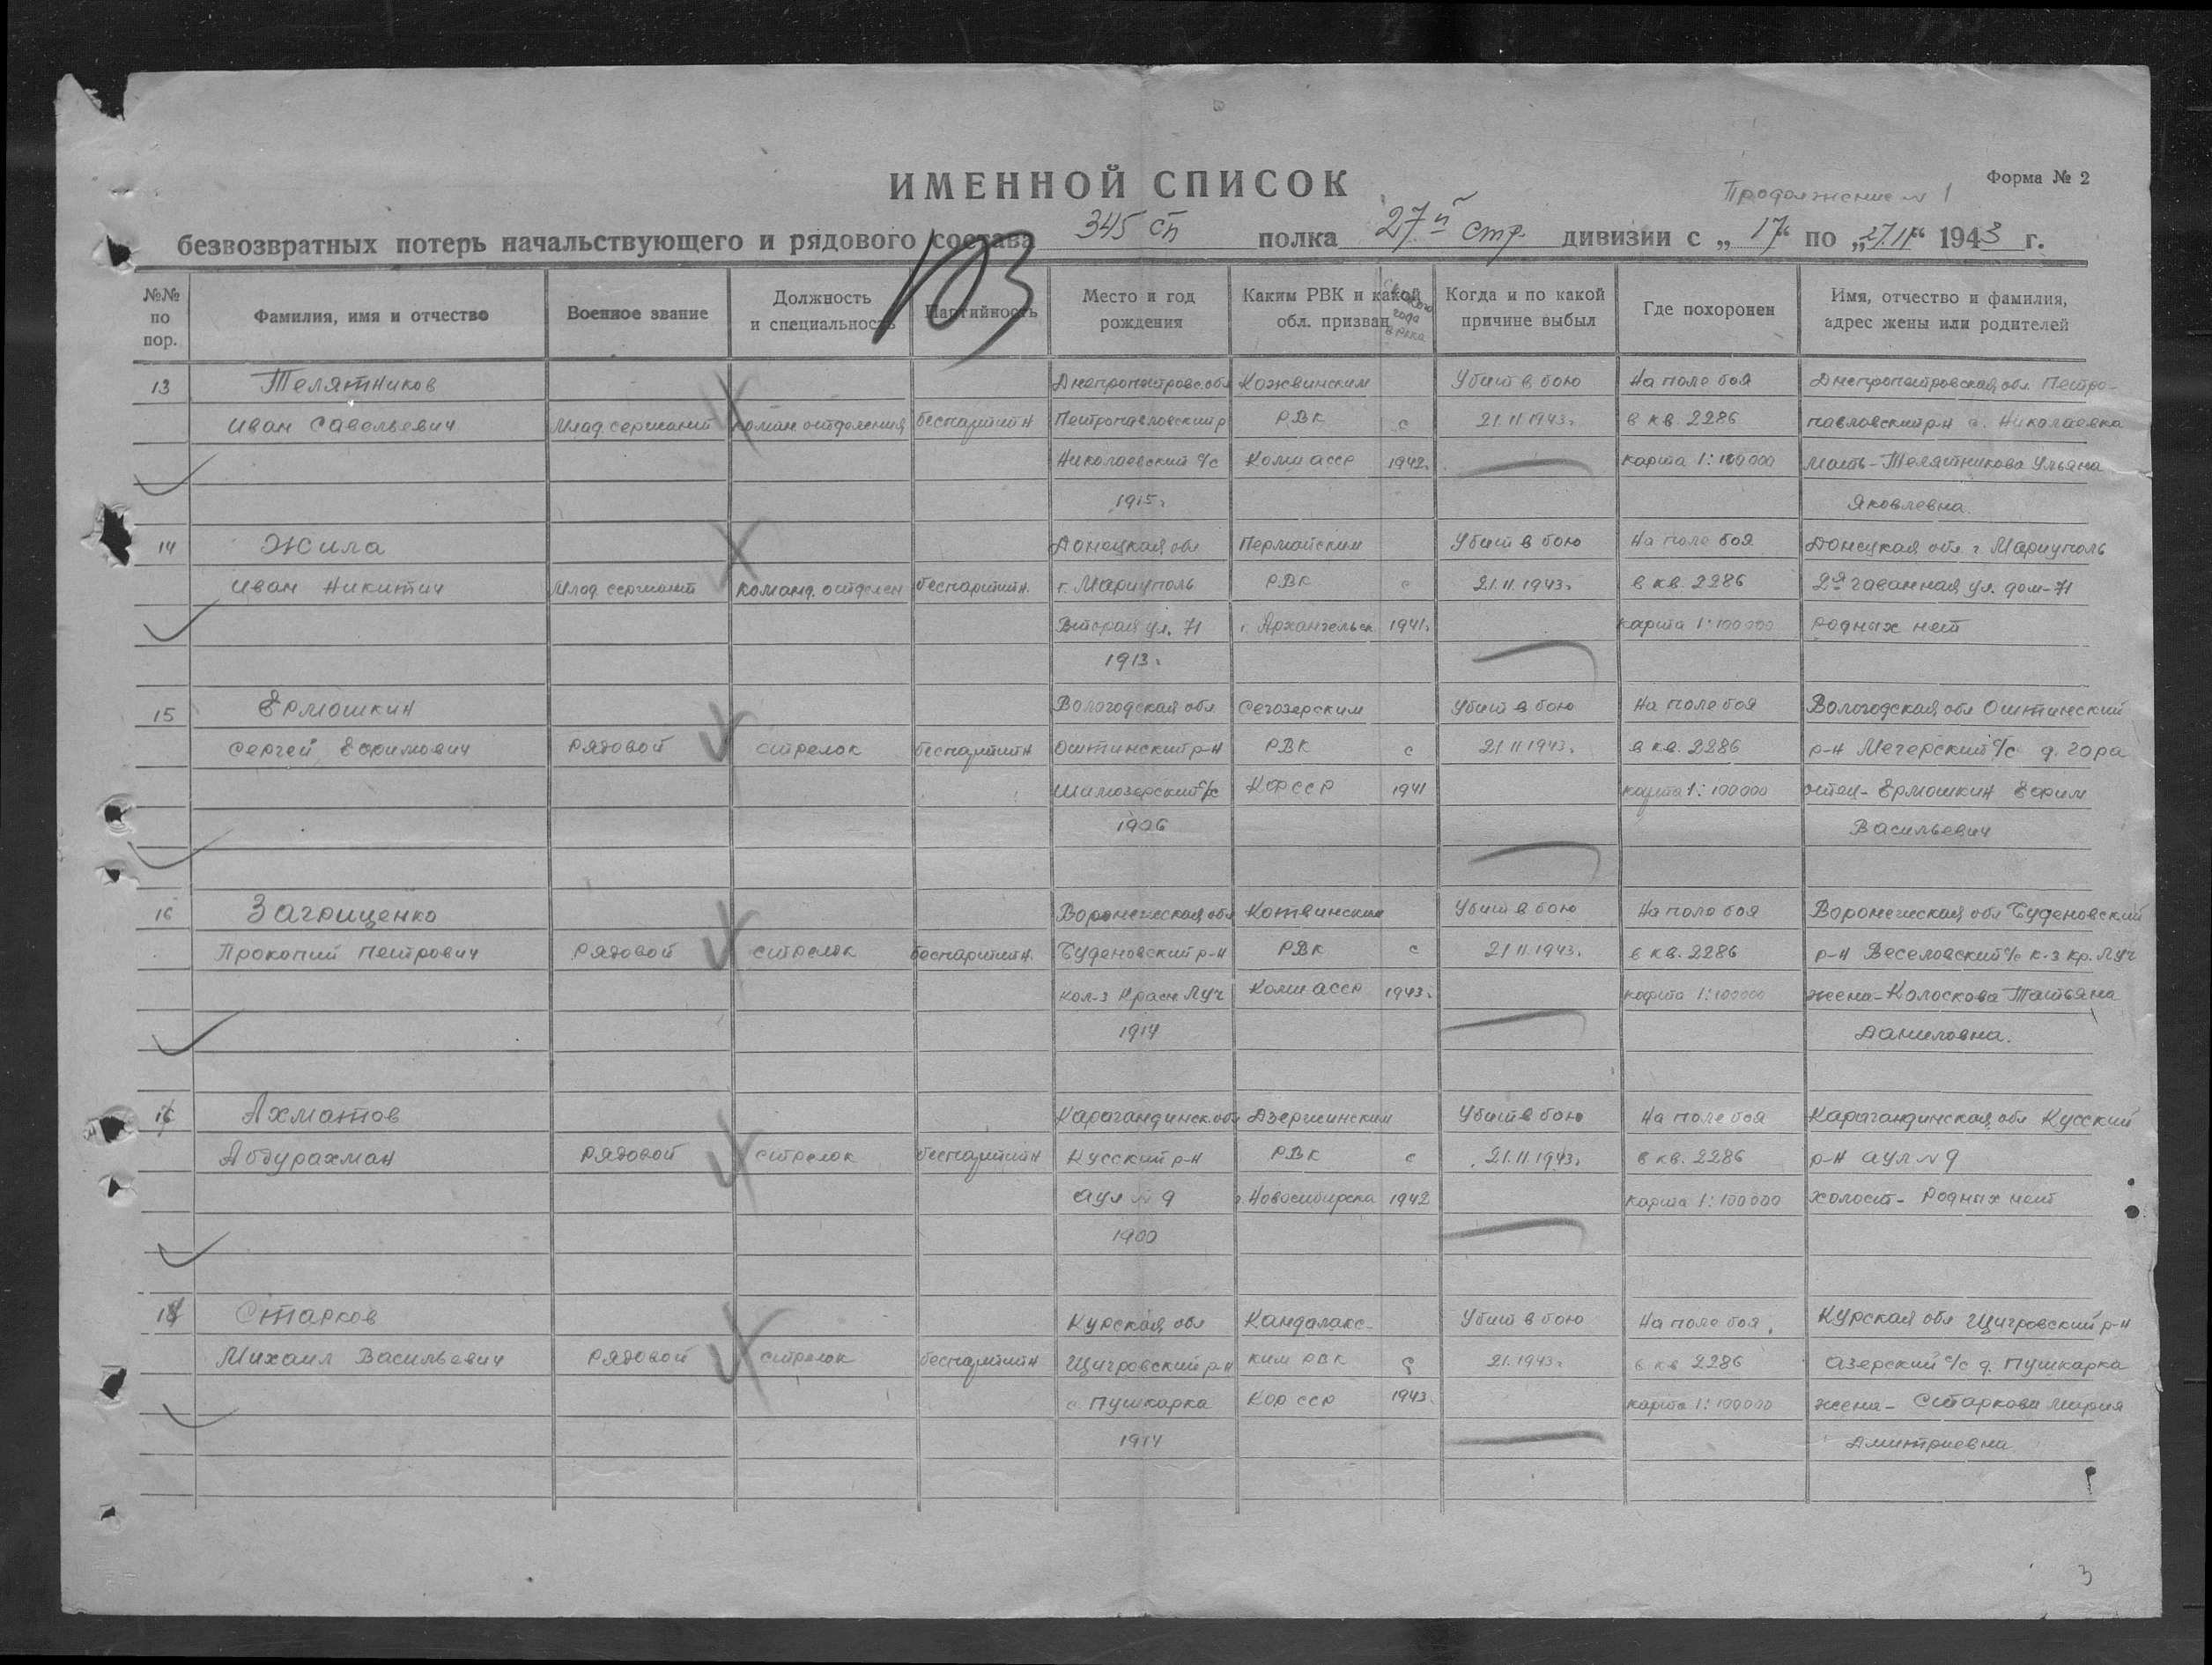 Форма № 2
Продолжение N 1
ИМЕННОЙ СПИСОК
безвозвратных потерь начальствующего и рядового состава 345 сп полка 27й стр. дивизии с „ 17“ по „27.11“ 1943 г.
103
№№ по пор.
Фамилия, имя и отчество
Военное звание
Должность и специальность
Партийность
Место и год рождения
Каким РВК и какой обл. призван
С какого года в РККА
Когда и по какой причине выбыл
Где похоронен
Имя, отчество и фамилия, адрес жены или родителей
13 Телятников Днепропетровс.обл Кожвинским Убит в бою На поле боя Днепропетровская обл. Петро-
Иван Савельевич Млад. сержант Коман. отделения беспартийн Петропавловский р РВК с 21.11.1943г. в кв. 2286 павловский р-н с. Николаевка
Николаевский с/с Коми асср 1942г. карта 1:100000 мать-Телятникова Ульяна
1915г. Яковлевна
14 Жила Донецкая обл Пермайским Убит в бою На поле боя Донецкая обл. г Мариуполь
Иван Никитич Млад. сержант Команд. отделен беспартийн. г. Мариуполь РВК с 21.11.1943г. в кв. 2286 2я гаванная ул. дом-71
Вторая ул. 71 г. Архангельск 1941г. карта 1:100000 родных нет
1913г.
15 Ермошкин Вологодская обл Сегозерским Убит в бою На поле боя Вологодская обл Оштинский
Сергей Ефимович Рядовой стрелок беспартийн Оштинский р-н РВК с 21.11.1943г. в кв. 2286 р-н Мегерский с/с д. Гора
Шимозерский с/с КФССР 1941 карта 1:100000 отец-Ермошкин Ефим
1906 Васильевич
16 Загрищенко Воронежская обл Котвинским Убит в бою На поле боя Воронежская обл Буденовский
Прокопий Петрович Рядовой стрелок беспартийн. Буденовский р-н РВК с 21.11.1943г. в кв. 2286 р-н Веселовский с/с к-з Кр. Луч
кол-з Красн Луч Коми асср 1943г. карта 1:100000 жена-Колоскова Татьяна
1914 Даниловна.
16 Ахматов Карагандинск.обл Дзержинским Убит в бою На поле боя Карагандинская обл Кусский
Абдурахман Рядовой стрелок беспартийн Кусский р-н РВК с 21.11.1943г. в кв. 2286 р-н аул N 9
аул N 9 г. Новосибирска 1942 карта 1:100000 холост- Родных нет
1900
18 Старков Курская обл Кандалакс- Убит в бою На поле боя. Курская обл Щигровский р-н
Михаил Васильевич Рядовой стрелок беспартийн Щигровский р-н ким РВК с 21.1943г. в кв 2286 Азерский с/с д. Пушкарка
с. Пушкарка КФР ССР 1943. карта 1:100000 жена- Старкова Мария
1914 Дмитриевна
3